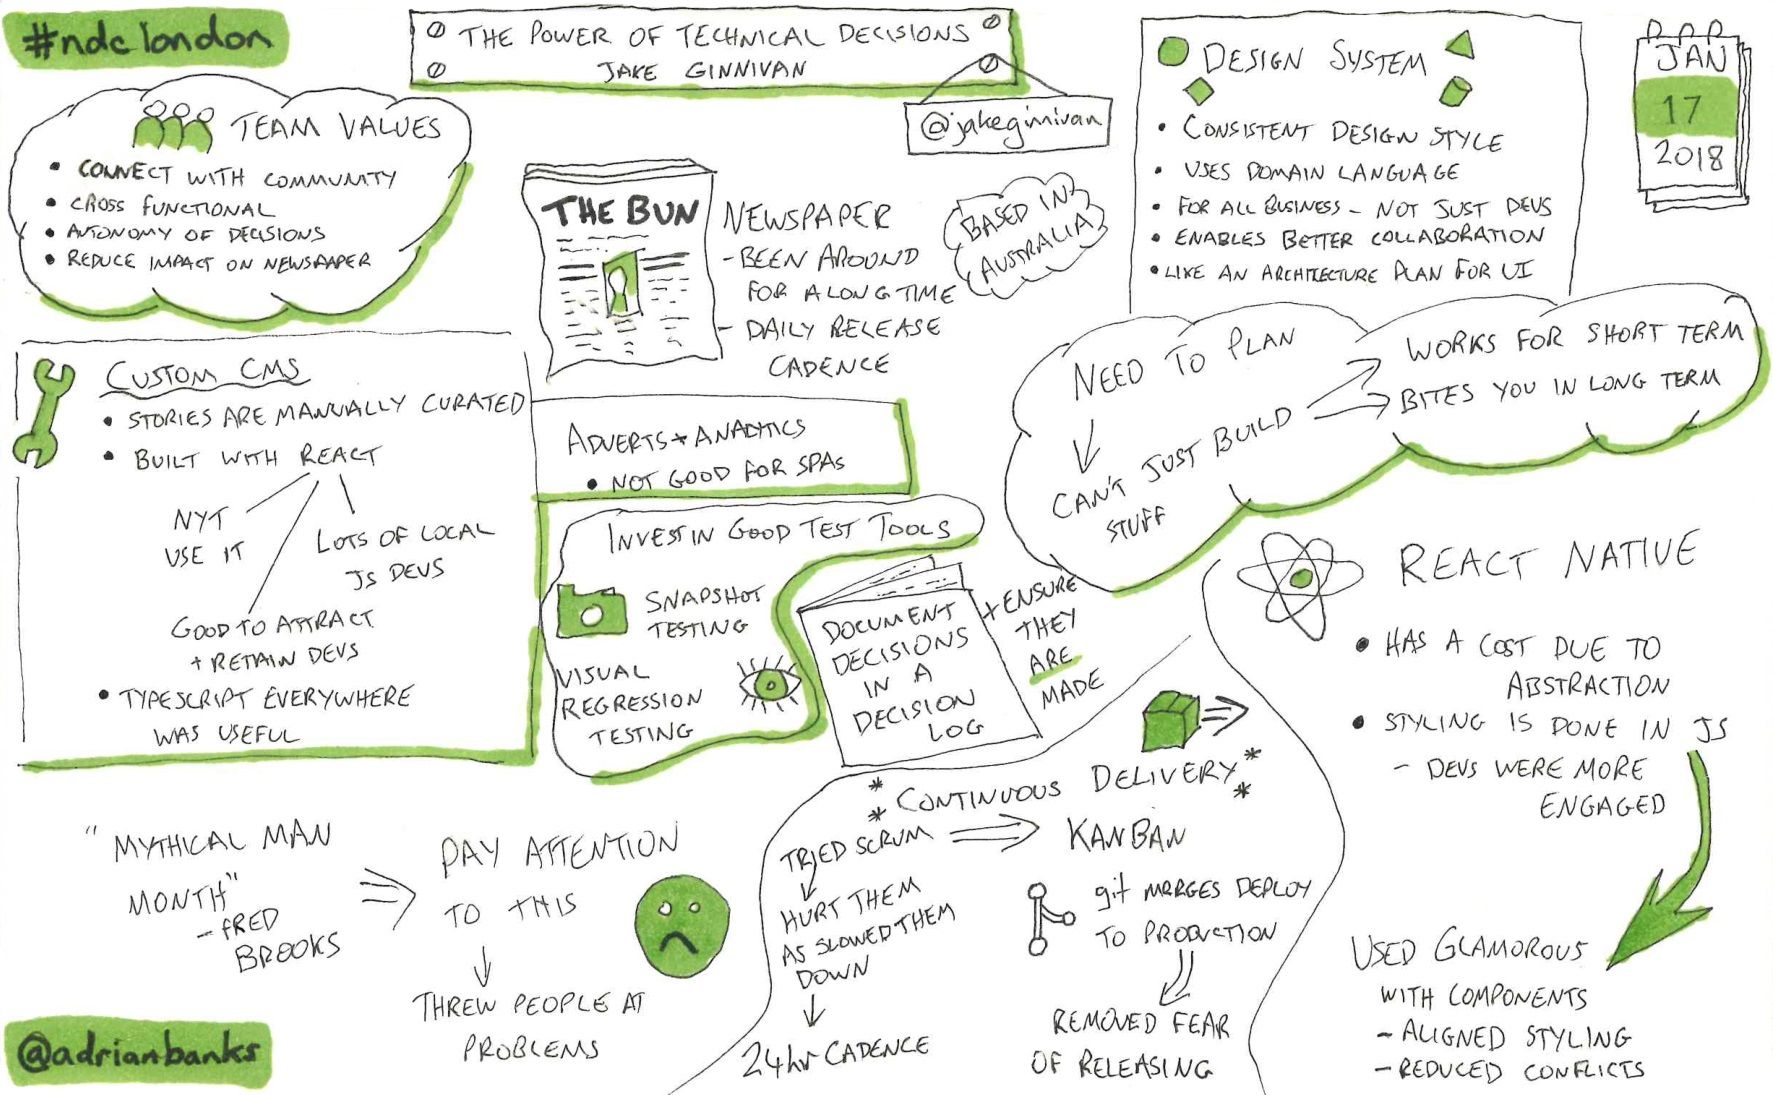 #ndclondon
THE POWER OF TECHNICAL DECISIONS
JAKE GINNIVAN
@jakeginnivan
JAN
17
2018
TEAM VALUES
• CONNECT WITH COMMUNITY
• CROSS FUNCTIONAL
• AUTONOMY OF DECISIONS
• REDUCE IMPACT ON NEWSPAPER
THE BUN
NEWSPAPER
- BEEN AROUND
FOR A LONG TIME
- DAILY RELEASE
CADENCE
BASED IN
AUSTRALIA
DESIGN SYSTEM
• CONSISTENT DESIGN STYLE
• USES DOMAIN LANGUAGE
• FOR ALL BUSINESS - NOT JUST DEVS
• ENABLES BETTER COLLABORATION
• LIKE AN ARCHITECTURE PLAN FOR UI
CUSTOM CMS
• STORIES ARE MANUALLY CURATED
• BUILT WITH REACT
NYT
USE IT
LOTS OF LOCAL
JS DEVS
GOOD TO ATTRACT
+ RETAIN DEVS
• TYPESCRIPT EVERYWHERE
WAS USEFUL
ADVERTS + ANALYTICS
• NOT GOOD FOR SPAs
NEED TO PLAN
CAN'T JUST BUILD
STUFF
WORKS FOR SHORT TERM
BITES YOU IN LONG TERM
INVEST IN GOOD TEST TOOLS
SNAPSHOT
TESTING
VISUAL
REGRESSION
TESTING
DOCUMENT
DECISIONS
IN A
DECISION
LOG
+ ENSURE
THEY
ARE
MADE
REACT NATIVE
• HAS A COST DUE TO
ABSTRACTION
• STYLING IS DONE IN JS
- DEVS WERE MORE
ENGAGED
USED GLAMOROUS
WITH COMPONENTS
- ALIGNED STYLING
- REDUCED CONFLICTS
"MYTHICAL MAN
MONTH"
- FRED
BROOKS
PAY ATTENTION
TO THIS
THREW PEOPLE AT
PROBLEMS
* CONTINUOUS DELIVERY *
* *
TRIED SCRUM
HURT THEM
AS SLOWED THEM
DOWN
24hr CADENCE
KANBAN
git MERGES DEPLOY
TO PRODUCTION
REMOVED FEAR
OF RELEASING
@adrianbanks